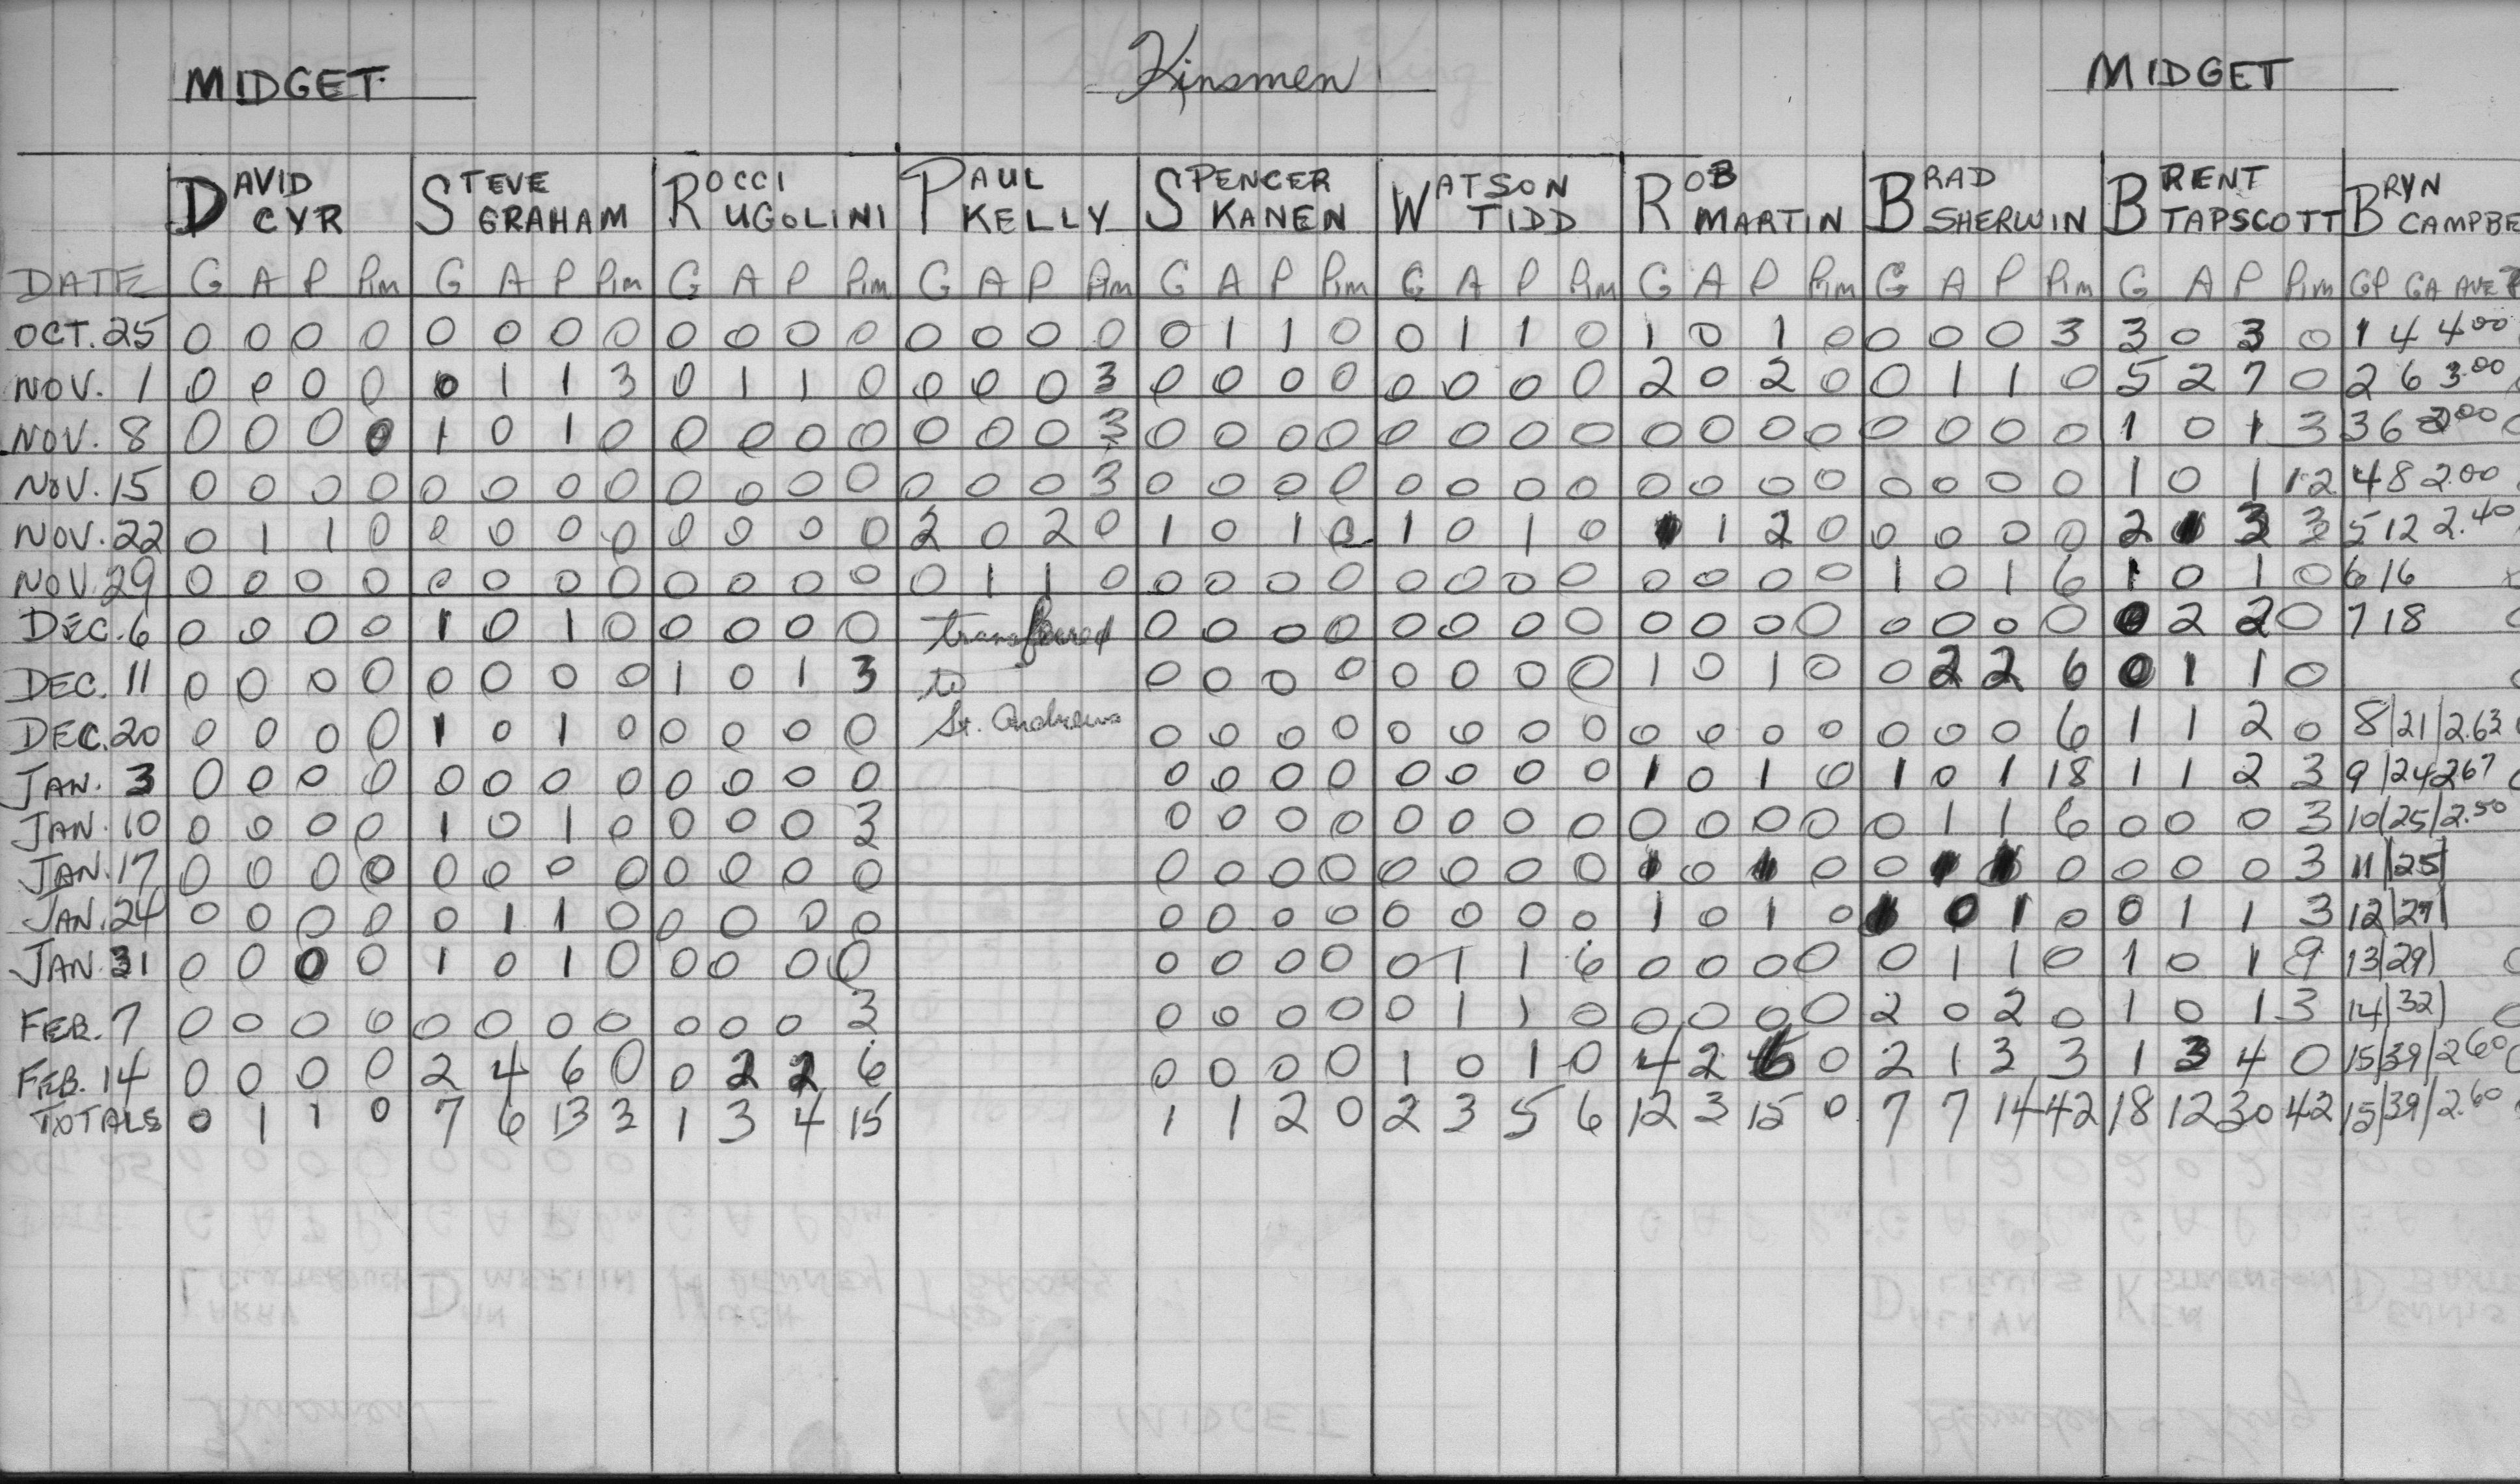 MIDGET Kinsmen MIDGET
DAVID CYR STEVE GRAHAM ROCCI UGOLINI PAUL KELLY SPENCER KANEN WATSON TIDD ROB MARTIN BRAD SHERWIN BRENT TAPSCOTT BRYN CAMPBE
DATE G A P Pim G A P Pim G A P Pim G A P Pim G A P Pim G A P Pim G A P Pim G A P Pim G A P Pim GP GA AVE
OCT. 25 0 0 0 0 0 0 0 0 0 0 0 0 0 0 0 0 0 1 1 0 0 1 1 0 1 0 1 0 0 0 0 3 3 0 3 0 1 4 4.00
NOV. 1 0 0 0 0 0 1 1 3 0 1 1 0 0 0 0 3 0 0 0 0 0 0 0 0 2 0 2 0 0 1 1 0 5 2 7 0 2 6 3.00
NOV. 8 0 0 0 0 1 0 1 0 0 0 0 0 0 0 0 3 0 0 0 0 0 0 0 0 0 0 0 0 0 0 0 0 1 0 1 3 3 6 2.00
NOV. 15 0 0 0 0 0 0 0 0 0 0 0 0 0 0 0 3 0 0 0 0 0 0 0 0 0 0 0 0 0 0 0 0 1 0 1 12 4 8 2.00
NOV. 22 0 1 1 0 0 0 0 0 0 0 0 0 2 0 2 0 1 0 1 0 1 0 1 0 1 2 0 0 0 0 0 2 3 3 5 12 2.40
NOV. 29 0 0 0 0 0 0 0 0 0 0 0 0 0 1 1 0 0 0 0 0 0 0 0 0 0 0 0 0 1 0 1 6 1 0 1 0 6 16
DEC. 6 0 0 0 0 1 0 1 0 0 0 0 0 transferred 0 0 0 0 0 0 0 0 0 0 0 0 0 0 0 0 0 2 2 0 7 18
DEC. 11 0 0 0 0 0 0 0 0 1 0 1 3 to 0 0 0 0 0 0 0 0 1 0 1 0 0 2 2 6 0 1 1 0
DEC. 20 0 0 0 0 1 0 1 0 0 0 0 0 St. Andrews 0 0 0 0 0 0 0 0 0 0 0 0 0 0 0 6 1 1 2 0 8|21|2.63
JAN. 3 0 0 0 0 0 0 0 0 0 0 0 0 0 0 0 0 0 0 0 0 1 0 1 0 1 0 1 18 1 1 2 3 9|24 2.67
JAN. 10 0 0 0 0 1 0 1 0 0 0 0 3 0 0 0 0 0 0 0 0 0 0 0 0 0 1 1 6 0 0 0 3 10|25|2.50
JAN. 17 0 0 0 0 0 0 0 0 0 0 0 0 0 0 0 0 0 0 0 0 1 0 1 0 0 0 0 0 0 3 11|25|
JAN. 24 0 0 0 0 0 1 1 0 0 0 0 0 0 0 0 0 0 0 0 0 1 0 1 0 0 1 0 0 1 1 3 12|27|
JAN. 31 0 0 0 0 1 0 1 0 0 0 0 0 0 0 0 0 0 1 1 6 0 0 0 0 0 1 1 0 1 0 1 9 13|29|
FEB. 7 0 0 0 0 0 0 0 0 0 0 0 3 0 0 0 0 0 1 1 0 0 0 0 0 2 0 2 0 1 0 1 3 14|32|
FEB. 14 0 0 0 0 2 4 6 0 0 2 2 6 0 0 0 0 1 0 1 0 4 2 6 0 2 1 3 3 1 3 4 0 15|39|2.60
TOTALS 0 1 1 0 7 6 13 3 1 3 4 15 1 1 2 0 2 3 5 6 12 3 15 0 7 7 14 42 18 12 30 42 15|39|2.60